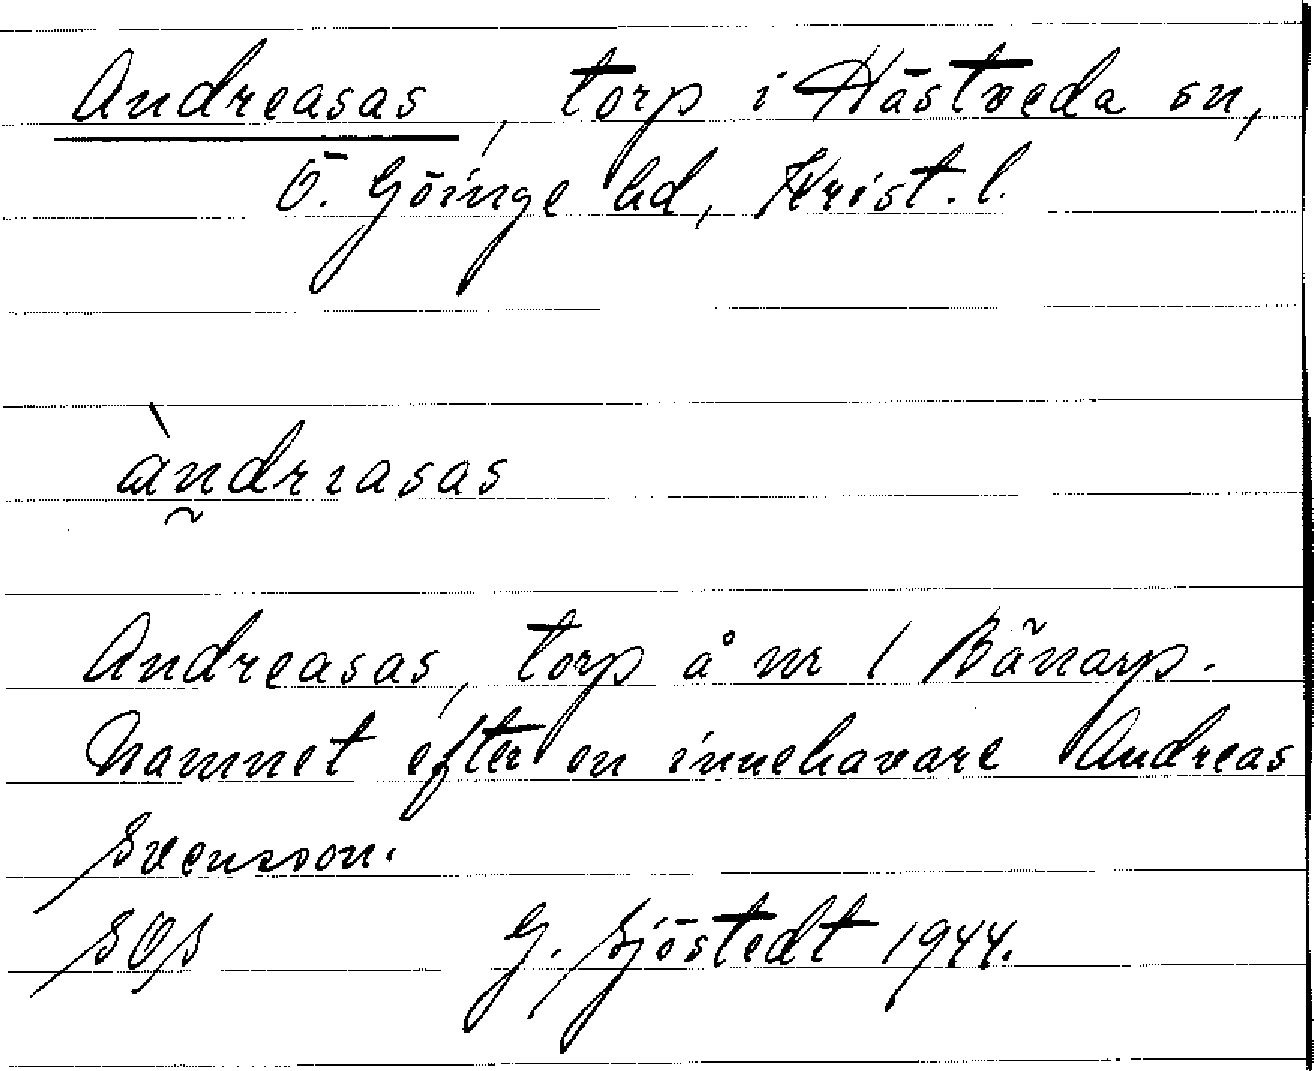 Andreasas, torp i Hästveda sn,
Ö. Göinge hd, Krist. l.
àndrıasas
Andreasas, torp å nr 1 Bänarp.
Namnet efter en innehavare Andreas
Svensson.
SOS G. Sjöstedt 1944.